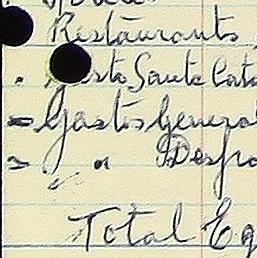 Restaurants
Santa Cata
Gastos General
" Despa
Total Eq